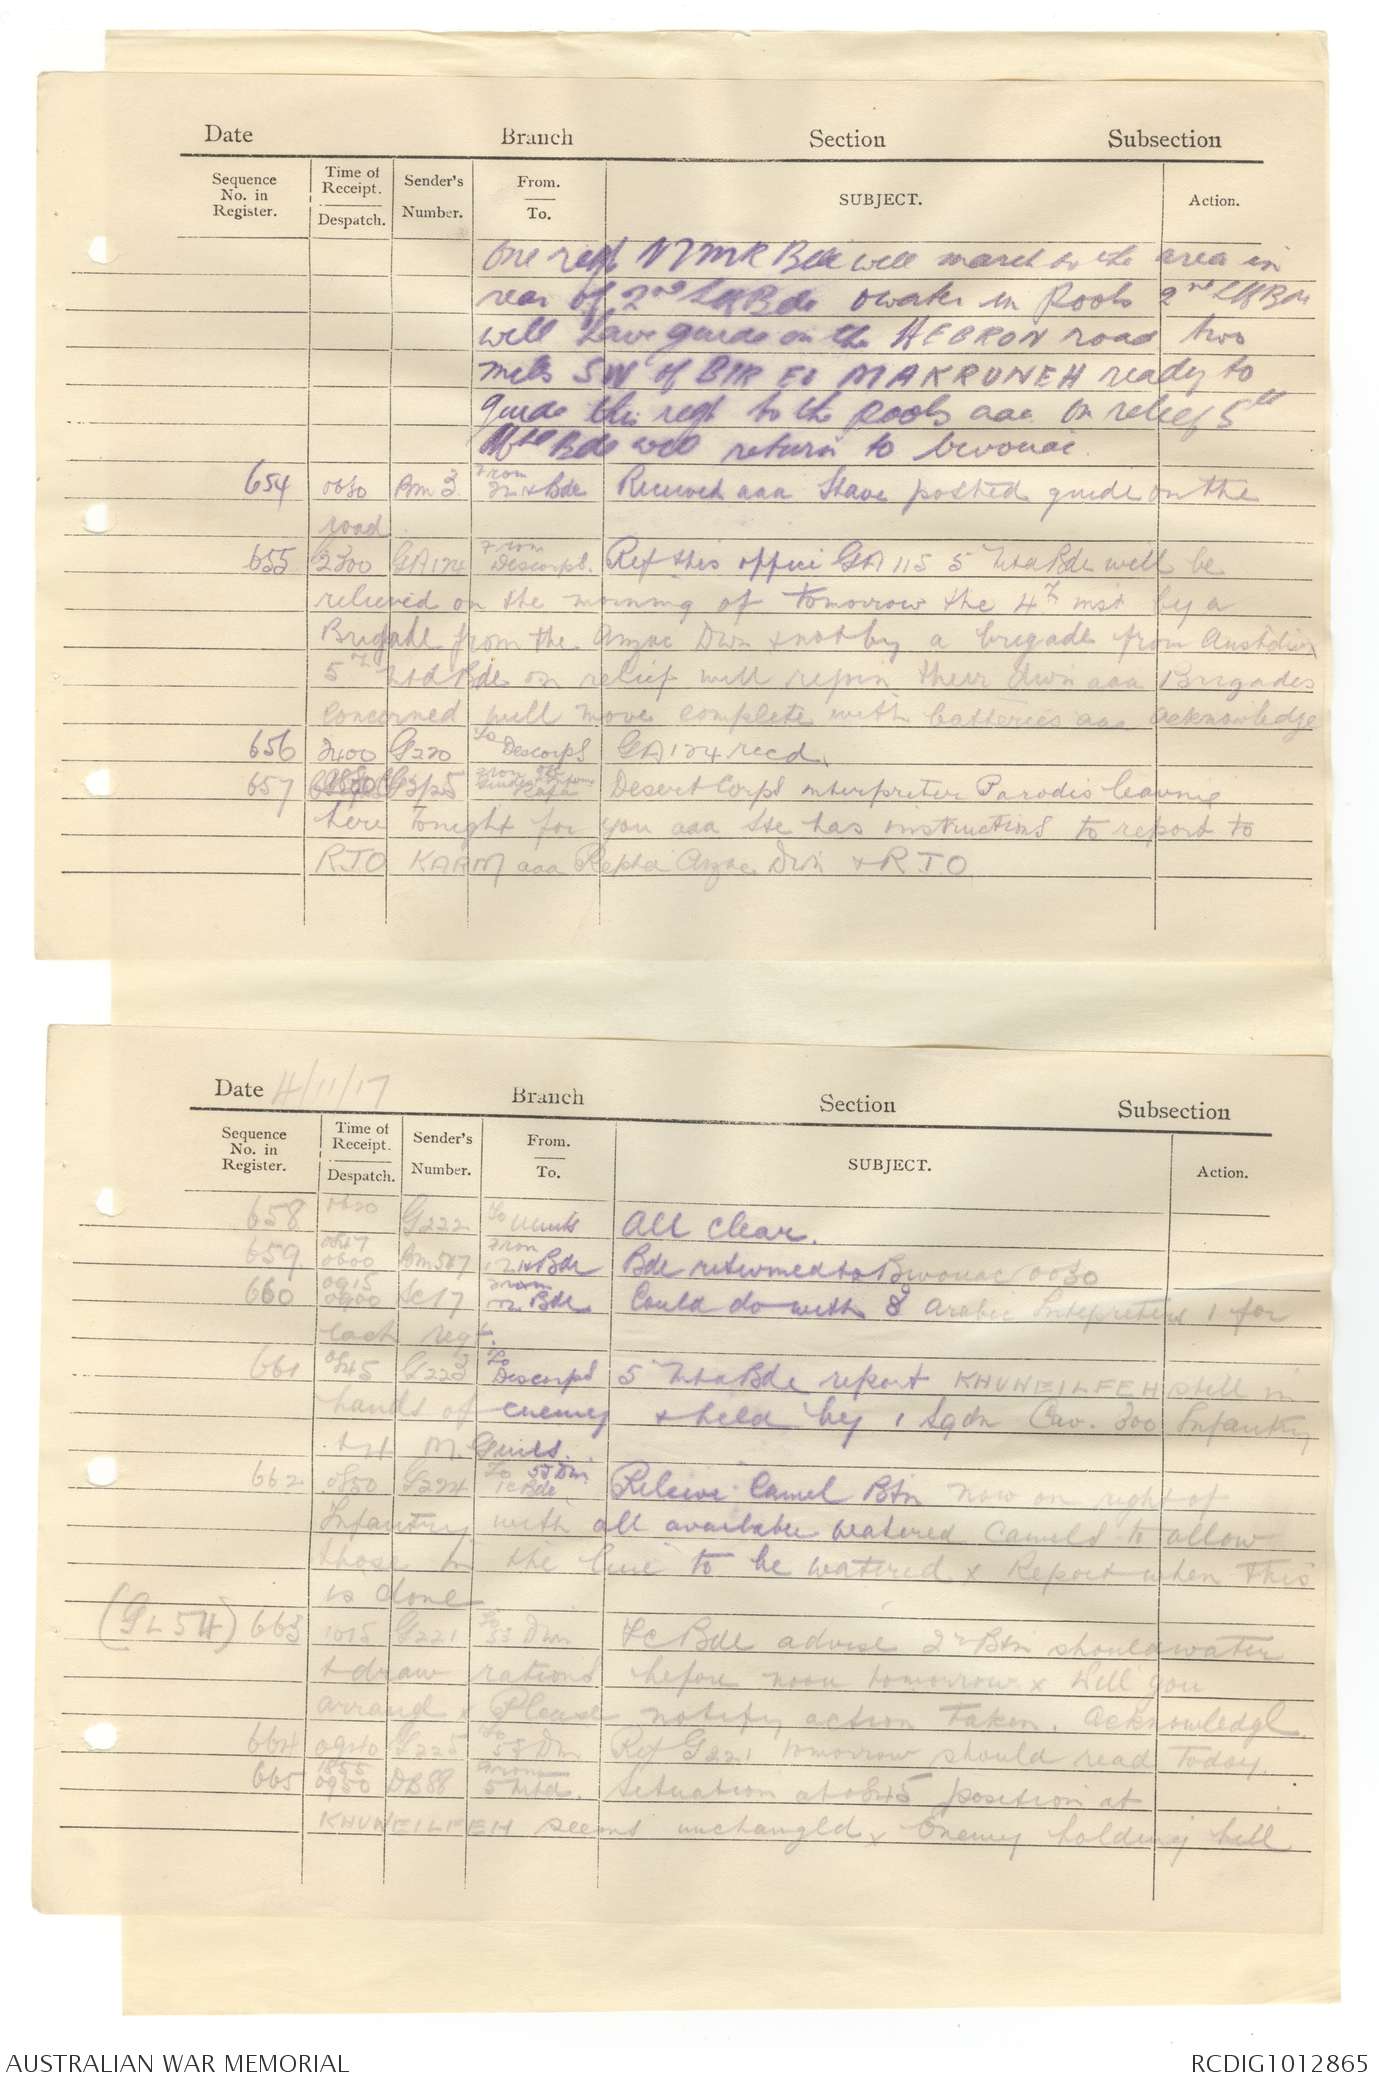 Date Branch Section Subsection
Sequence No. in Register. Time of Receipt. Despatch. Sender's Number. From. To. SUBJECT. Action.
One regt NZMR Bde will march to the area in
rear of 2nd LH Bde & water in Pools 2nd LH Bde
will have guide on the HEBRON road two
miles SW of BIR EL MAKRUNEH ready to
guide this regt to the pools aaa On relief 5th
Mtd Bde will return to bivouac.
654 0030 Bm 3 From Bde Received aaa Have posted guide on the
road
655 2300 GA124 From Descorps. Ref this office GA 115 5 Mtd Bde will be
relieved on the morning of tomorrow the 4th inst by a
Brigade from the Anzac Divn & not by a brigade from Austdivn
5th Mtd Bde on relief will rejoin their divn aaa Brigades
concerned will move complete with batteries aaa acknowledge
656 2400 G220 To Descorps GA124 recd.
657 From Rafa Desert Corps interpreter Parodis leaving
here tonight for you aaa He has instructions to report to
RTO KARM aaa Reptd Anzac Divn & RTO
Date 4/11/17 Branch Section Subsection
Sequence No. in Register. Time of Receipt. Despatch. Sender's Number. From. To. SUBJECT. Action.
658 0620 G222 To Units All clear.
659 0600 Bm507 From Bde Bde returned to Bivouac 0030
660 0915 0900 Sc17 From Bde. Could do with 8 Arabic Interpreters 1 for
each regt.
661 0845 G223 To Descorps 5 Mtd Bde report KHUWEILFEH still in
hands of enemy & held by 1 Sqdn Cav. 300 Infantry
M. Guns.
662 0850 G224 To 53 Div. IC Bde Relieve Camel Btn now on right of
Infantry with all available watered Camels to allow
those in the line to be watered x Report when this
is done
(GL 54) 663 1015 G221 To 53 Divn Ic Bde advise 2nd Btn should water
& draw rations before noon tomorrow x Will you
arrange x Please notify action taken. Acknowledge.
664 0940 G225 To 53 Divn Ref G221 tomorrow should read today.
665 0950 DB88 From 5 Mtd. Situation at 0845 position at
KHUWEILFEH seems unchanged x Enemy holding hill
AUSTRALIAN WAR MEMORIAL RCDIG1012865